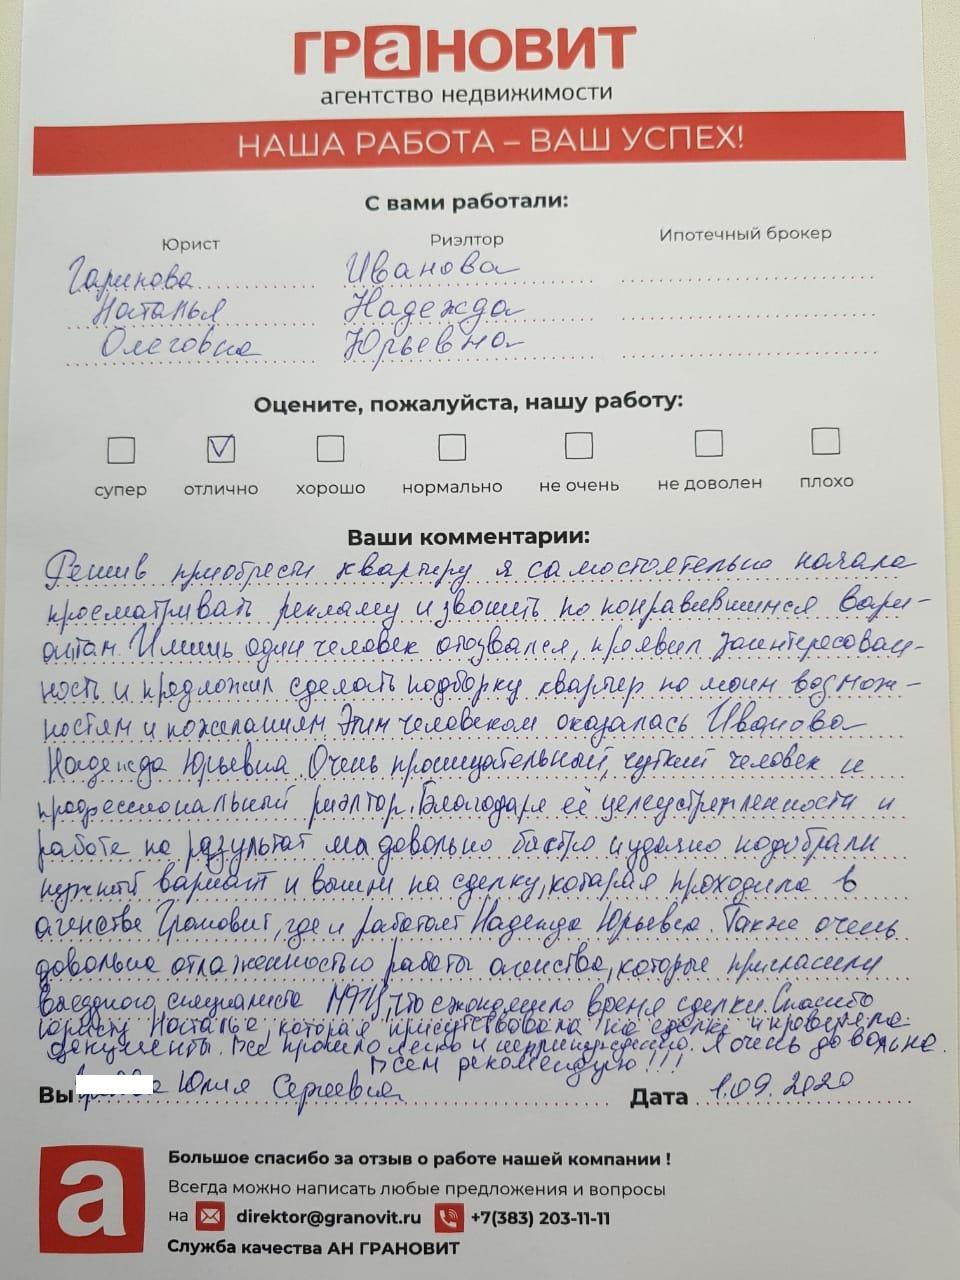 ГРаНОВИТ
агентство недвижимости
НАША РАБОТА – ВАШ УСПЕХ!
С вами работали:
Юрист Риэлтор Ипотечный брокер
Гаринова Иванова
Наталья Надежда
Олеговна Юрьевна
Оцените, пожалуйста, нашу работу:
супер отлично хорошо нормально не очень не доволен плохо
Ваши комментарии:
Решив приобрести квартиру я самостоятельно начала
просматривать рекламу и звонить по понравившимся вари-
антам. И лишь один человек отозвался, проявил заинтересован-
ность и предложил сделать подборку квартир по моим возмож-
ностям и пожеланиям. Этим человеком оказалась Иванова
Надежда Юрьевна. Очень проницательный, чуткий человек и
профессиональный риэлтор. Благодаря её целеустремленности и
работе на результат мы довольно быстро и удачно подобрали
нужный вариант и вышли на сделку, которая проходила в
агенстве Грановит, где и работает Надежда Юрьевна. Также очень
довольна отлаженностью работы агенства, которые пригласили
выездного специалиста МФЦ, что сэкономило время сделки. Спасибо
юристу Наталье, которая присутствовала на сделке и проверяла
документы. Все прошло легко и непринужденно. Я очень довольна.
Всем рекомендую!!!
Вы Юлия Сергеевна Дата 1.09.2020
а
Большое спасибо за отзыв о работе нашей компании !
Всегда можно написать любые предложения и вопросы
на direktor@granovit.ru +7(383) 203-11-11
Служба качества АН ГРАНОВИТ